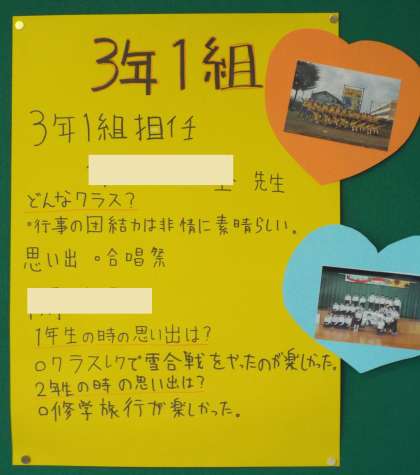 3年1組
3年1組担任
先生
どんなクラス?
・行事の団結力は非情に素晴らしい。
思い出 ・合唱祭
1年生の時の思い出は?
○クラスレクで雪合戦をやったのが楽しかった。
2年生の時の思い出は?
○修学旅行が楽しかった。